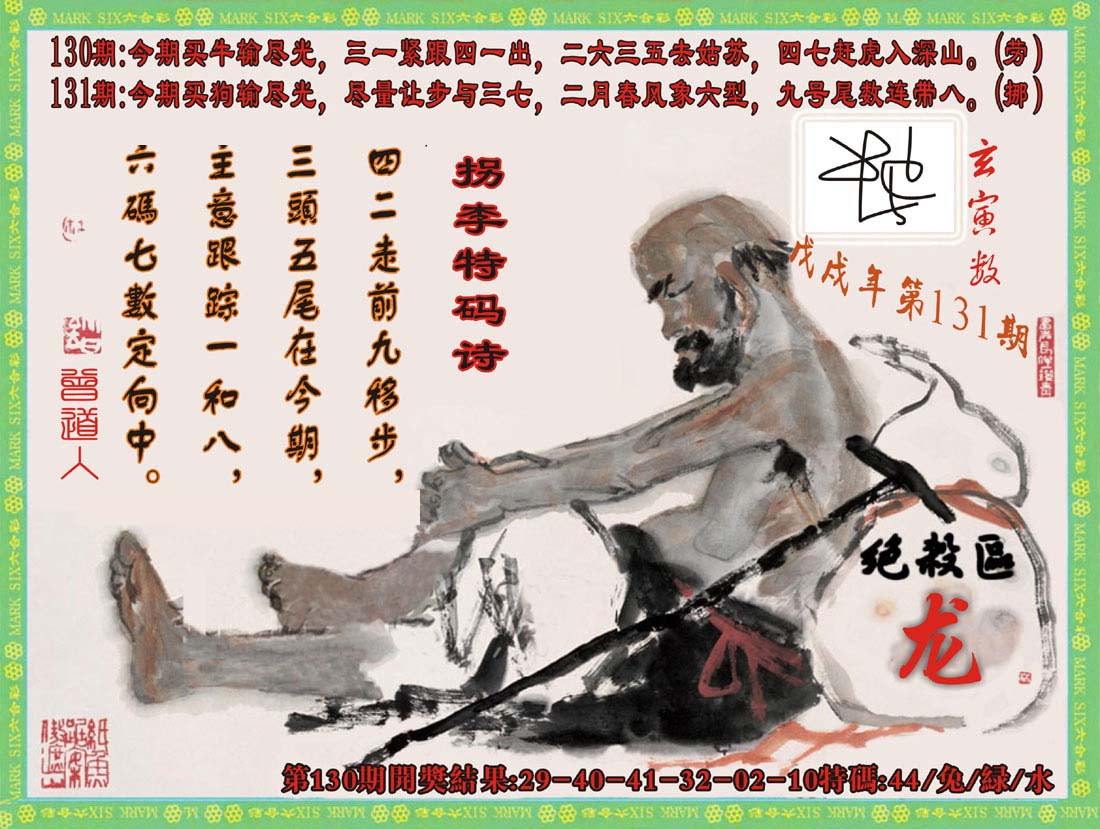 MARK SIX六合彩
130期:今期买牛输尽光，三一紧跟四一出，二六三五去姑苏，四七赶虎入深山。(劳)
131期:今期买狗输尽光，尽量让步与三七，二月春风象六型，九号尾数连带八。(挪)
玄寅数
戊戌年第131期
拐李特码诗
四二走前九移步，
三頭五尾在今期，
主意跟踪一和八，
六碼七數定向中。
曾道人
绝殺區
龙
第130期開獎結果:29-40-41-32-02-10特碼:44/兔/緑/水